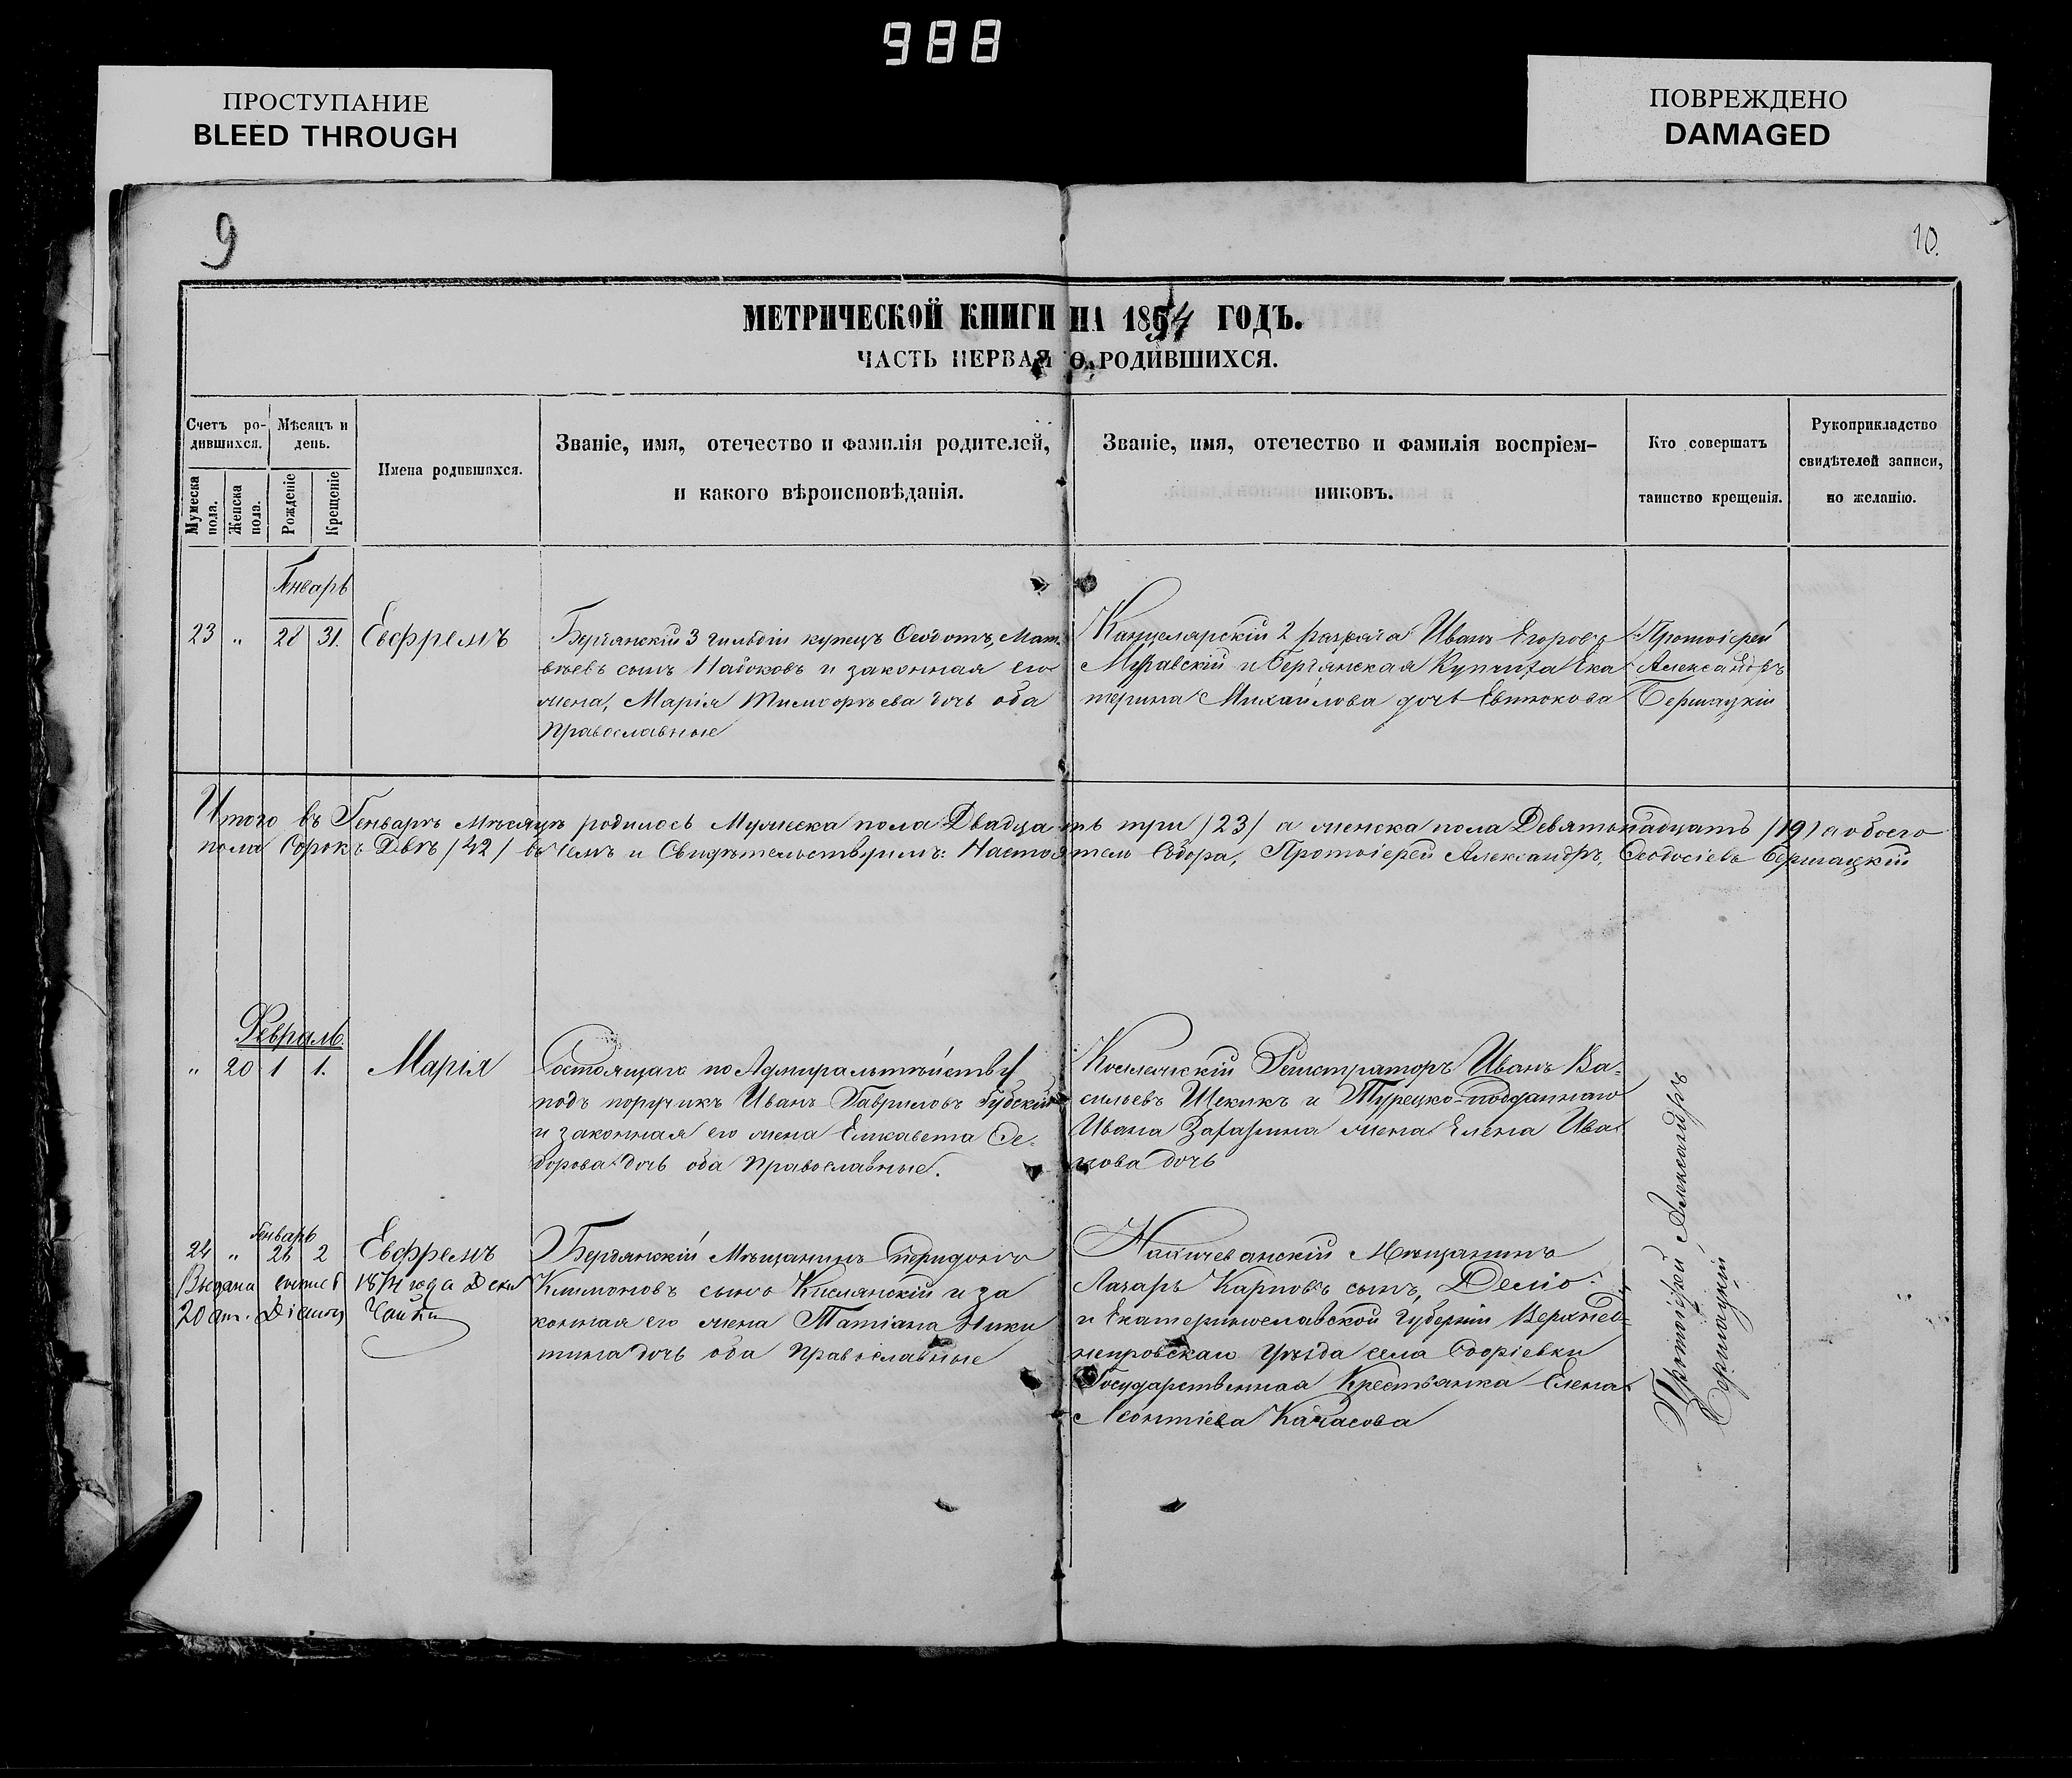 988
ПРОСТУПАНИЕ
BLEED THROUGH
ПОВРЕЖДЕНО
DAMAGED
9
10.
МЕТРИЧЕСКОЙ КНИГИ НА 1854 ГОДЪ.
ЧАСТЬ ПЕРВАЯ О РОДИВШИХСЯ.
Счетъ ро-
дившихся.
Мужеска пола.
Женска пола.
Мѣсяцъ и
день.
Рожденіе
Крещеніе
Имена родившихся.
Званіе, имя, отечество и фамилія родителей,
и какого вѣроисповѣданія.
Званіе, имя, отечество и фамилія воспріем-
никовъ.
Кто совершатъ
таинство крещенія.
Рукоприкладство
свидѣтелей записи,
по желанію.
Генварь
23 " 28 31. Евфремъ
Бердянскій 3 гильдіи купецъ Ѳеодотъ, Мат-
вѣевъ сынъ и законная его
жена, Марія Тимофѣева дочь оба
Православные
Канцелярскій 2 разряда Иванъ Егоровъ
Муравскій и Бердянская Купчиха Ека
терина Михайлова дочь
Протоіерей
Александръ
Бершацкій
Итого въ Генварѣ мѣсяцѣ родилось Мужеска пола Двадцать три /23/ а женска пола Девятьнадцать /19/ а обоего
пола Сорокъ Двѣ /42/ въ чемъ и Свидѣтельствуемъ: Настоятель Собора, Протоіерей Александръ, Ѳеодосіевъ Бершацкій
Февраль.
" 20 1 1. Марія
Состоящаго по Адмиралтейству
подъ поручикъ Иванъ Гавриловъ Губскій
и законная его жена Елисавета Ѳе-
дорова дочь оба Православные.
Коллежскій Регистраторъ Иванъ Ва-
сильевъ Щекикъ и Турецко-подданнаго
Ивана жена Елена Ива
нова дочь
Генварь
24 " 26 2 Евфремъ
Выдана 1871 года Дек
20 Чайки
Бердянскій Мѣщанинъ Спиридонъ
Климоновъ сынъ Кислянскій и за
конная его жена Татіана Ники
тина дочь оба Православные
Нахичеванскій Мѣщанинъ
Лазарь Карповъ сынъ, Деміо
и Екатеринославской Губерніи Верхнед-
непровскаго Уѣзда села Софіевки
Государственная Крестьянка Елена
Леонтіева Качасова
Протоіерей Александръ
Бершацкій